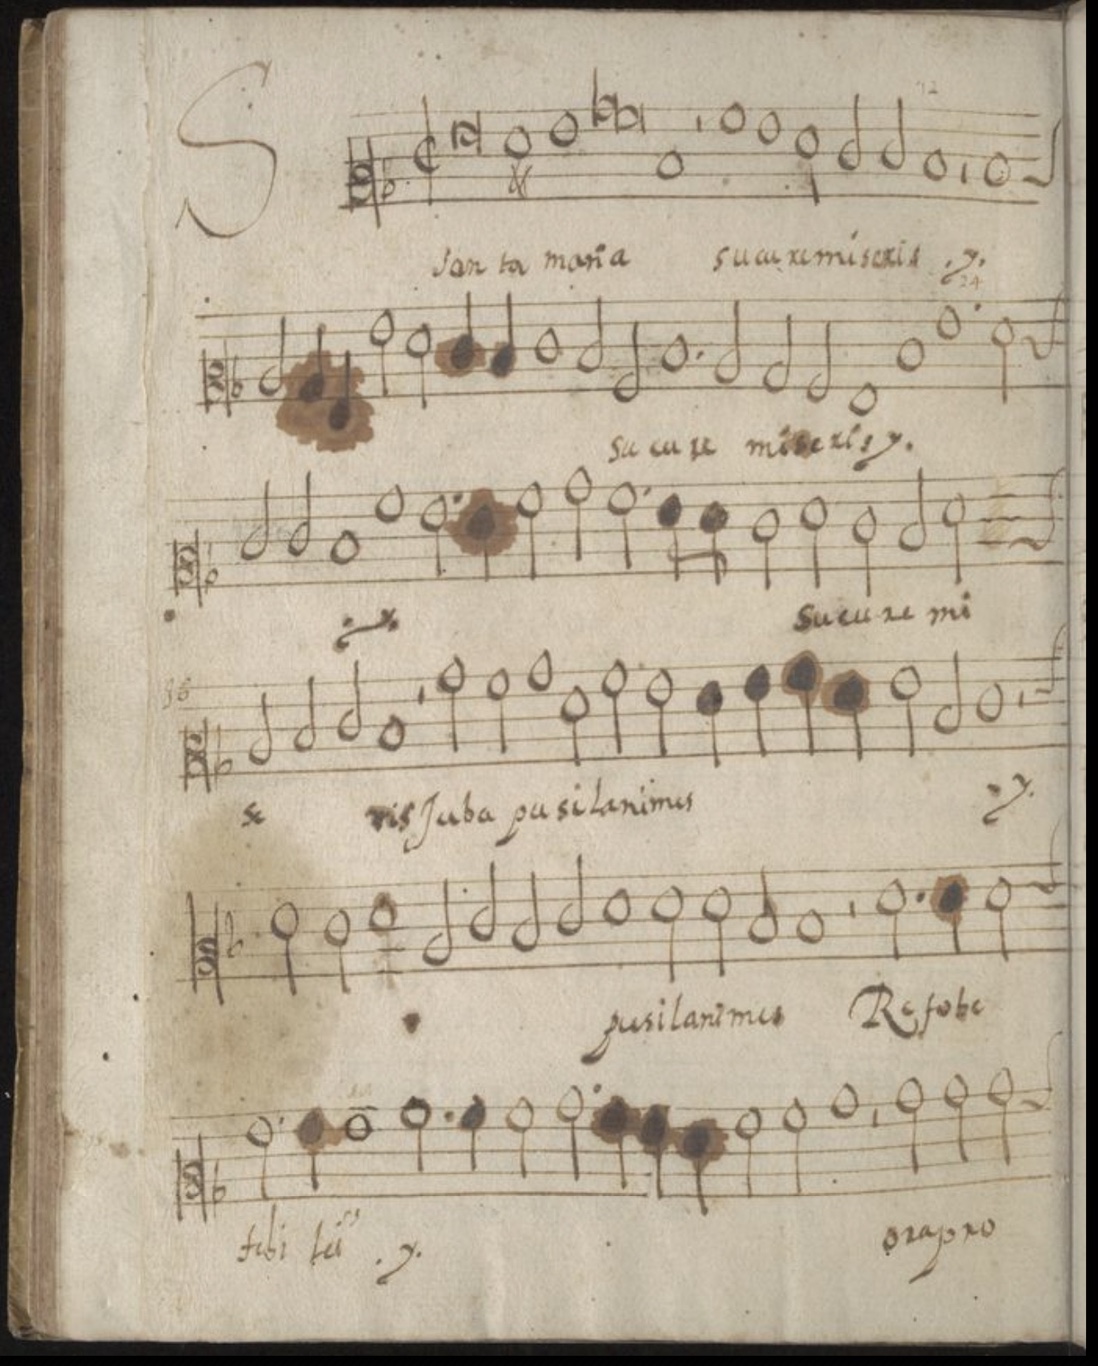 S
12
San ta maria sucuremiseris .y.
24
sucure miseris y.
.y.
sucure mi
36
se ris Juba pusilanimus .y.
pusilanimus Refobe
tibi .y. orapro